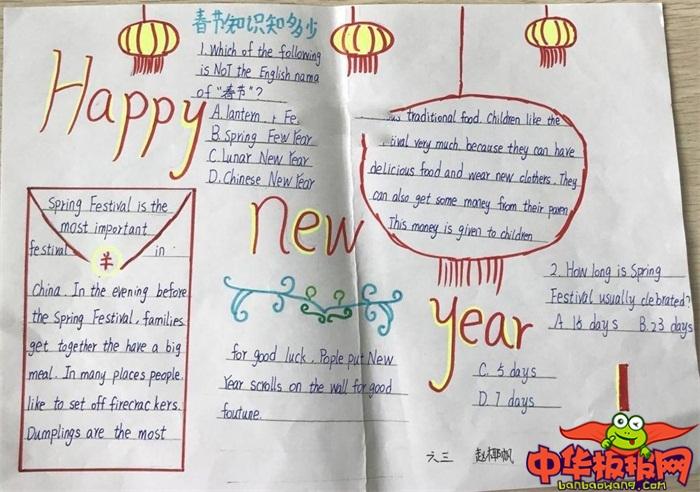 春节知识知多少
1. Which of the following
is NoT the English nama
of "春节"?
A. lantern
B. Spring Few Year
C. Lunar New Year
D. Chinese New Year
Happy
new
year
Spring Festival is the
most important
festival in
羊
China. In the evening before
the Spring Festival, families
get together the have a big
meal. In many places people
like to set off firecrackers.
Dumplings are the most
traditional food. Children like the
very much because they can have
delicious food and wear new clothers. They
can also get some maney from their
This maney is given to children
for good luck. Pople put New
Year scrolls on the wall for good
foutune.
2. How long is Spring
Festival usually clebrated?
A. 16 days B. 23 days
C. 5 days
D. 7 days
六三 赵椰帆
中华板报网
banbaowang.com